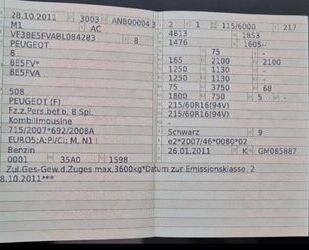 28.10.2011 3003 ANB00004 3
M1 AC
VF38E5FVABL084283 8
PEUGEOT
8
8E5FV*
8E5FVA
-
508
PEUGEOT (F)
Fz.z.Pers.bef.b. 8 Spl.
Kombilimousine
715/2007*692/2008A
EURO5;A;P/CI; M, N1 I
Benzin
0001 35A0 1598
Zul.Ges-Gew.d.Zuges max.3600kg*Datum zur Emissionsklasse: 2
8.10.2011***
2 1 115/6000 217
4813 1853
1476 1605--
75 -
165 2100 2100
1250 1130 -
1250 1130 -
75 3750 68
1800 750 5 -
215/60R16(94V)
215/60R16(94V)
-
Schwarz 9
e2*2007/46*0080*02
26.01.2011 K GM085887